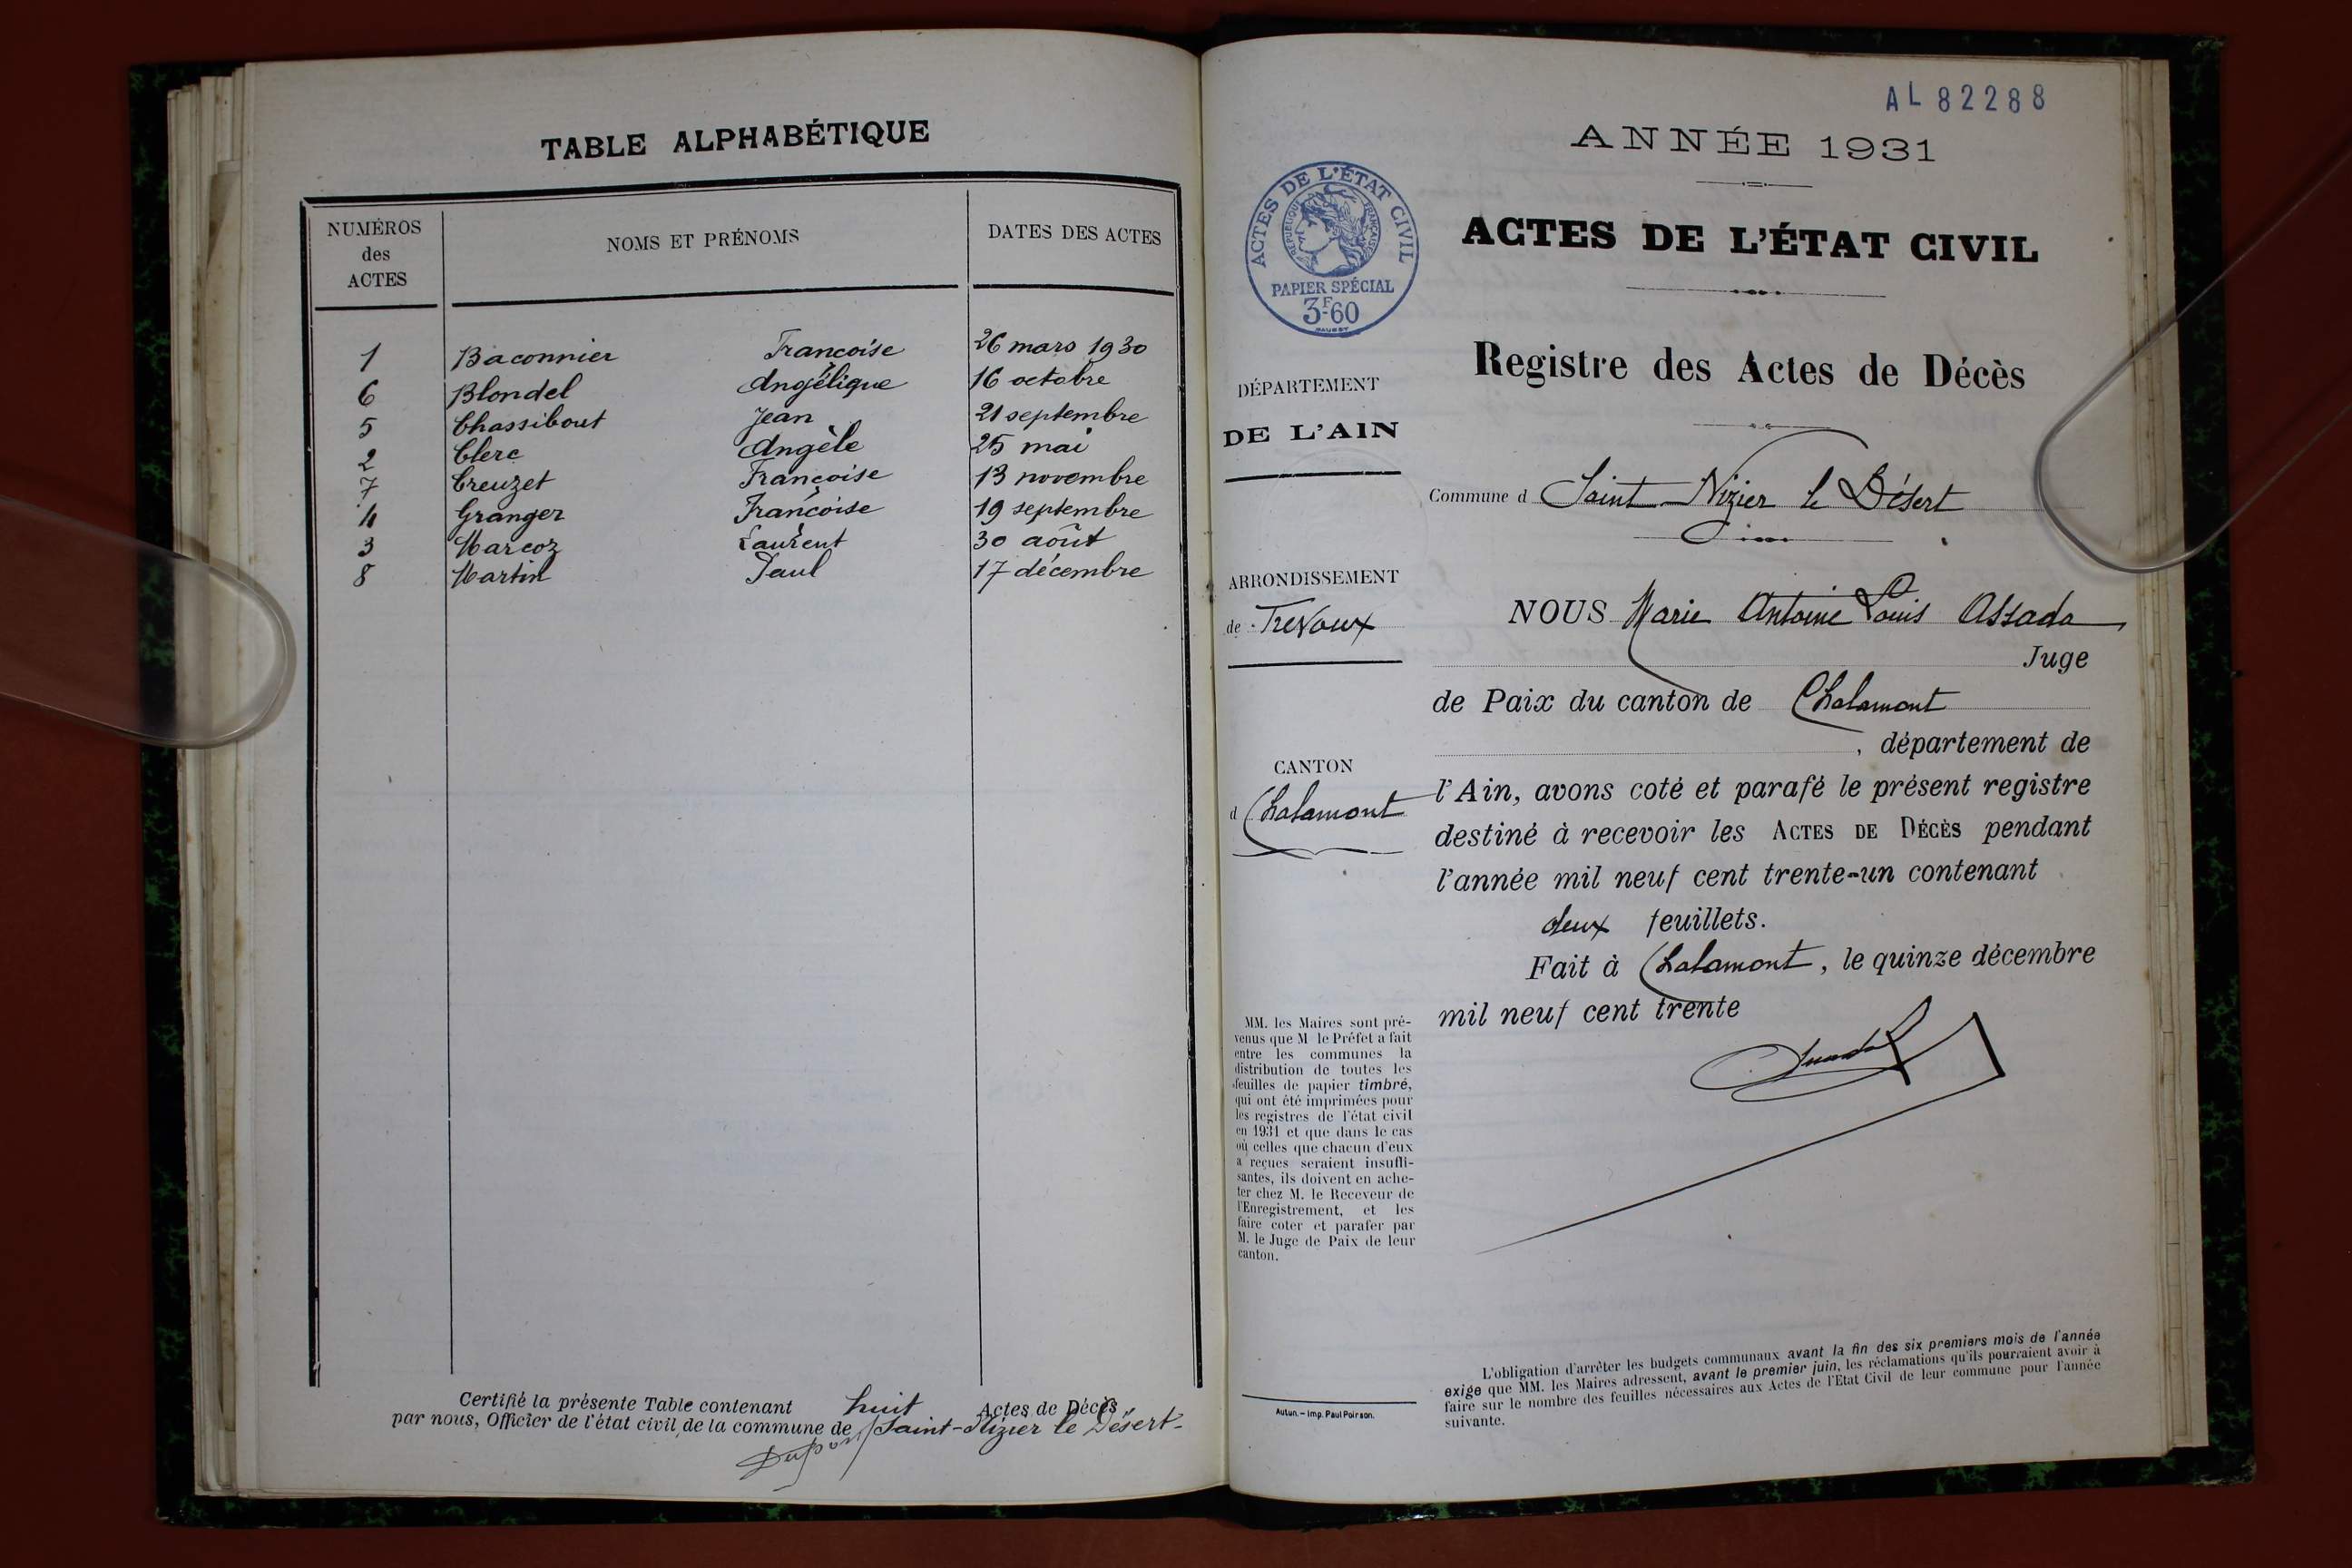 TABLE ALPHABÉTIQUE
NUMÉROS des ACTES NOMS ET PRÉNOMS DATES DES ACTES
1 Baconnier Françoise 26 mars 1930
6 Blondel Angélique 16 octobre
5 Chassibout Jean 21 septembre
2 Clerc Angèle 25 mai
7 Creuzet Françoise 13 novembre
4 Granger Françoise 19 septembre
3 Marcoz Laurent 30 août
8 Martin Paul 17 décembre
Certifié la présente Table contenant huit Actes de Décès
par nous, Officier de l'état civil de la commune de Saint-Nizier le Désert-
Dupont
AL 82288
ANNÉE 1931
ACTES DE L'ÉTAT CIVIL
RÉPUBLIQUE FRANÇAISE
PAPIER SPÉCIAL
3F60
ACTES DE L'ÉTAT CIVIL
Registre des Actes de Décès
DÉPARTEMENT
DE L'AIN
Commune d Saint-Nizier le Désert
ARRONDISSEMENT
de Trevoux
CANTON
d Chalamont
NOUS Marie Antoine Louis
Juge
de Paix du canton de Chalamont
, département de
l'Ain, avons coté et parafé le présent registre
destiné à recevoir les ACTES DE DÉCÈS pendant
l'année mil neuf cent trente-un contenant
deux feuillets.
Fait à Chalamont, le quinze décembre
mil neuf cent trente
MM. les Maires sont pré-
venus que M le Préfet a fait
entre les communes la
distribution de toutes les
feuilles de papier timbré,
qui ont été imprimées pour
les registres de l'état civil
en 1931 et que dans le cas
où celles que chacun d'eux
a reçues seraient insuffi-
santes, ils doivent en ache-
ter chez M. le Receveur de
l'Enregistrement, et les
faire coter et parafer par
M. le Juge de Paix de leur
canton.
Autun. – Imp. Paul Poirson.
L'obligation d'arrêter les budgets communaux avant la fin des six premiers mois de l'année
exige que MM. les Maires adressent, avant le premier juin, les réclamations qu'ils pourraient avoir à
faire sur le nombre des feuilles nécessaires aux Actes de l'Etat Civil de leur commune pour l'année
suivante.